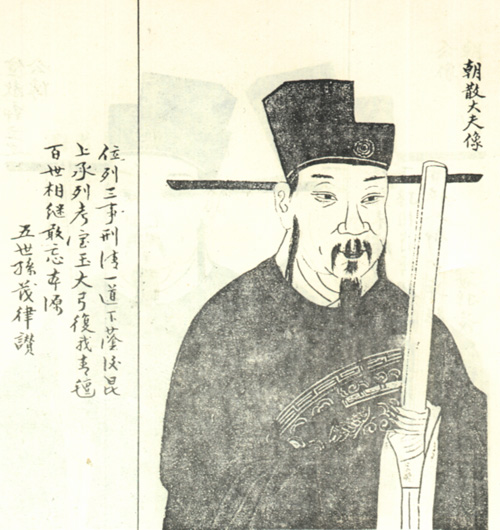 朝散大夫像
位列三事刑清一道下蔭後昆
上承列考宝玉大弓復我青氊
百世相継敢忘本源
五世孫茂律讃